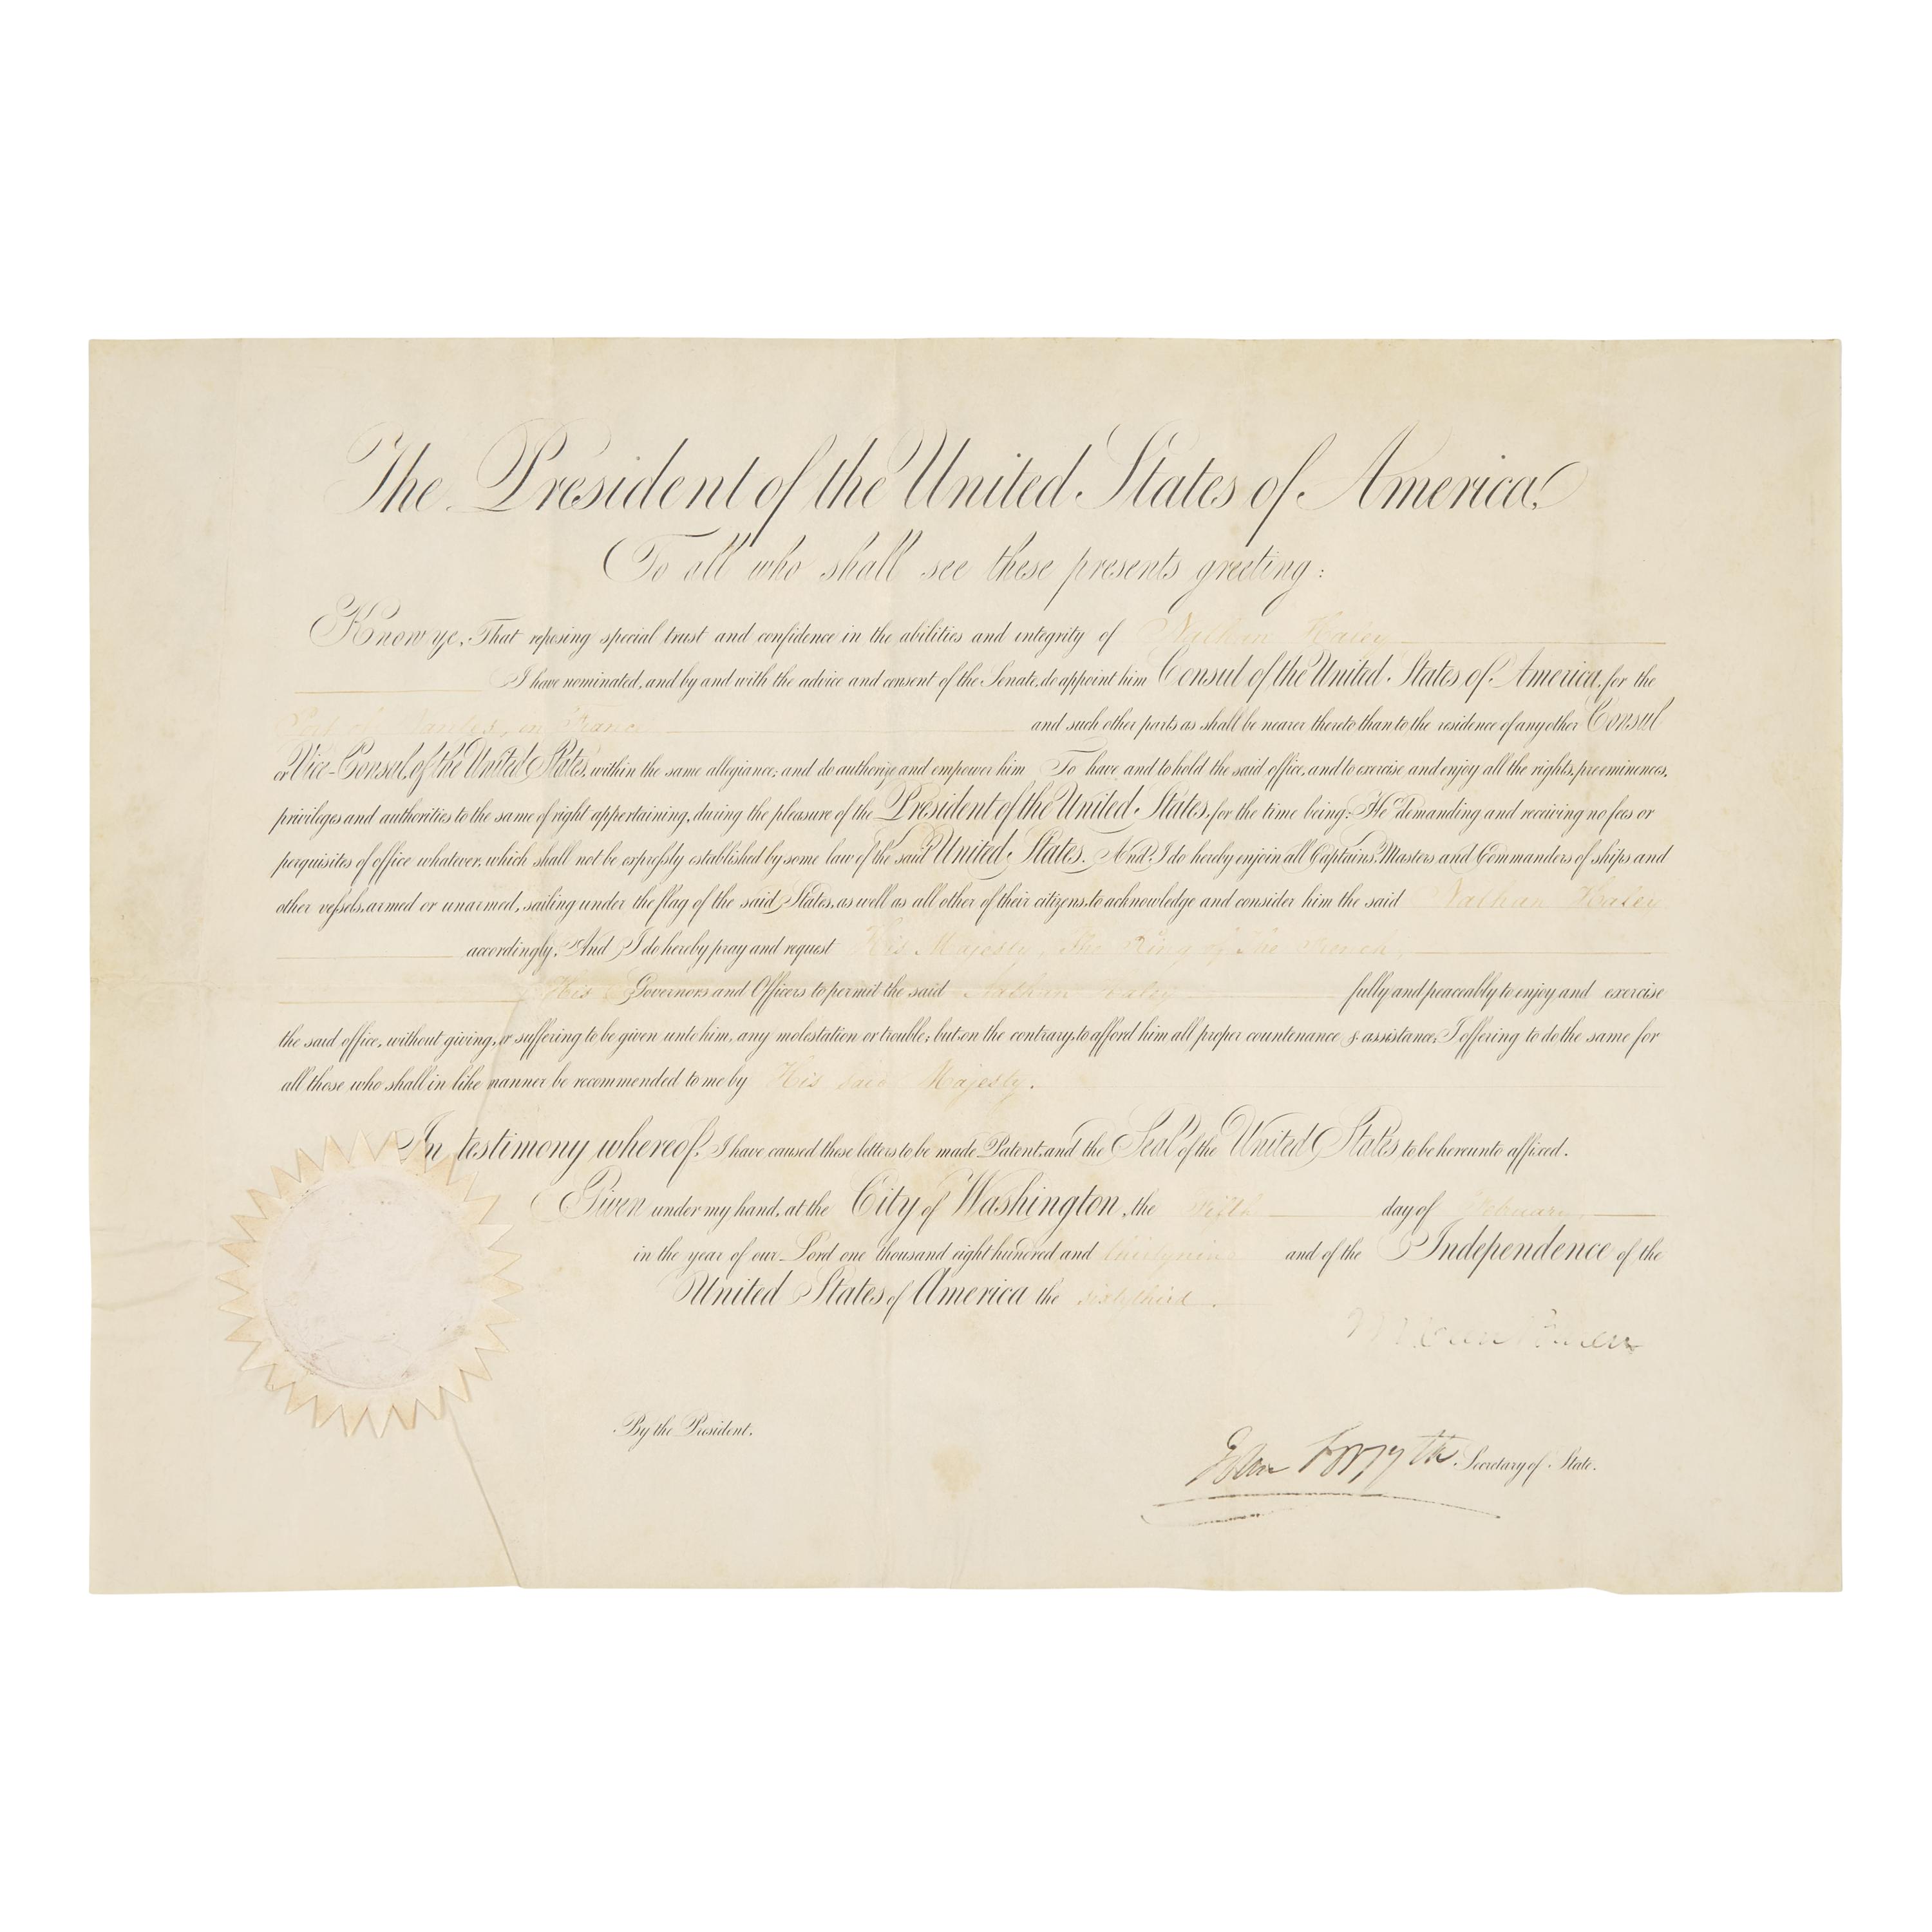 The President of the United States of America,
To all who shall see these presents greeting:
Know ye, That reposing special trust and confidence in the abilities and integrity of Nathan Haley
I have nominated, and by and with the advice and consent of the Senate, do appoint him Consul of the United States of America, for the
Port of Nantes, in France and such other parts as shall be nearer thereto than to the residence of any other Consul
or Vice-Consul, of the United States, within the same allegiance; and do authorize and empower him To have and to hold the said office, and to exercise and enjoy all the rights, preeminences,
privileges and authorities to the same of right appertaining, during the pleasure of the President of the United States, for the time being; He demanding and receiving no fees or
perquisites of office whatever, which shall not be expressly established by some law of the said United States. And I do hereby enjoin all Captains, Masters and Commanders of ships and
other vessels, armed or unarmed, sailing under the flag of the said States, as well as all other of their citizens, to acknowledge and consider him the said Nathan Haley
accordingly. And I do hereby pray and request His Majesty, The King of The French,
His Governors and Officers to permit the said Nathan Haley fully and peaceably to enjoy and exercise
the said office, without giving, or suffering to be given unto him, any molestation or trouble; but on the contrary, to afford him all proper countenance & assistance; I offering to do the same for
all those who shall in like manner be recommended to me by His said Majesty.
In testimony whereof, I have caused these letters to be made Patent, and the Seal of the United States to be hereunto affixed.
Given under my hand, at the City of Washington, the fifth day of February,
in the year of our Lord one thousand eight hundred and thirtynine and of the Independence of the
United States of America the sixtythird.
M Van Buren
By the President,
John Forsyth Secretary of State.